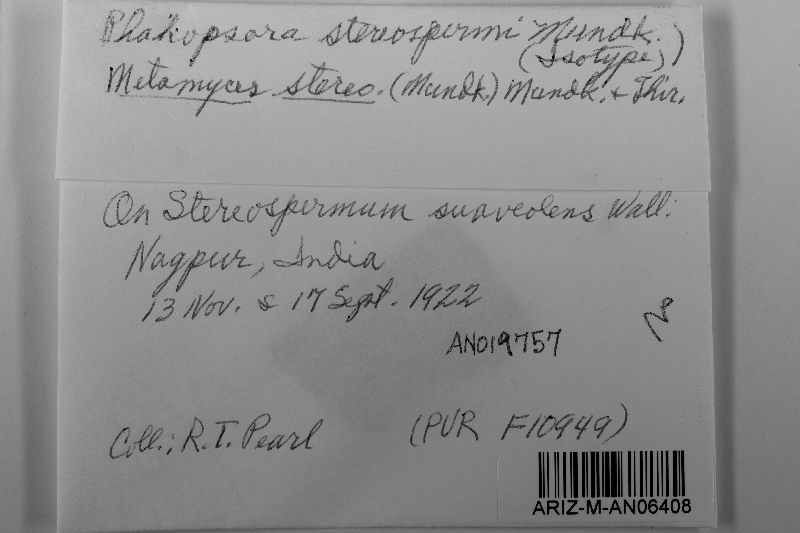 Phakopsora stereospermi Mundk.
(Isotype)
Metamyces stereo. (Mundk.) Mundk. & Thir.
On Stereospermum suaveolens Wall.
Nagpur, India
13 Nov. & 17 Sept. 1922
AN019757
Coll.; R.T. Pearl (PUR F10949)
ARIZ-M-AN06408